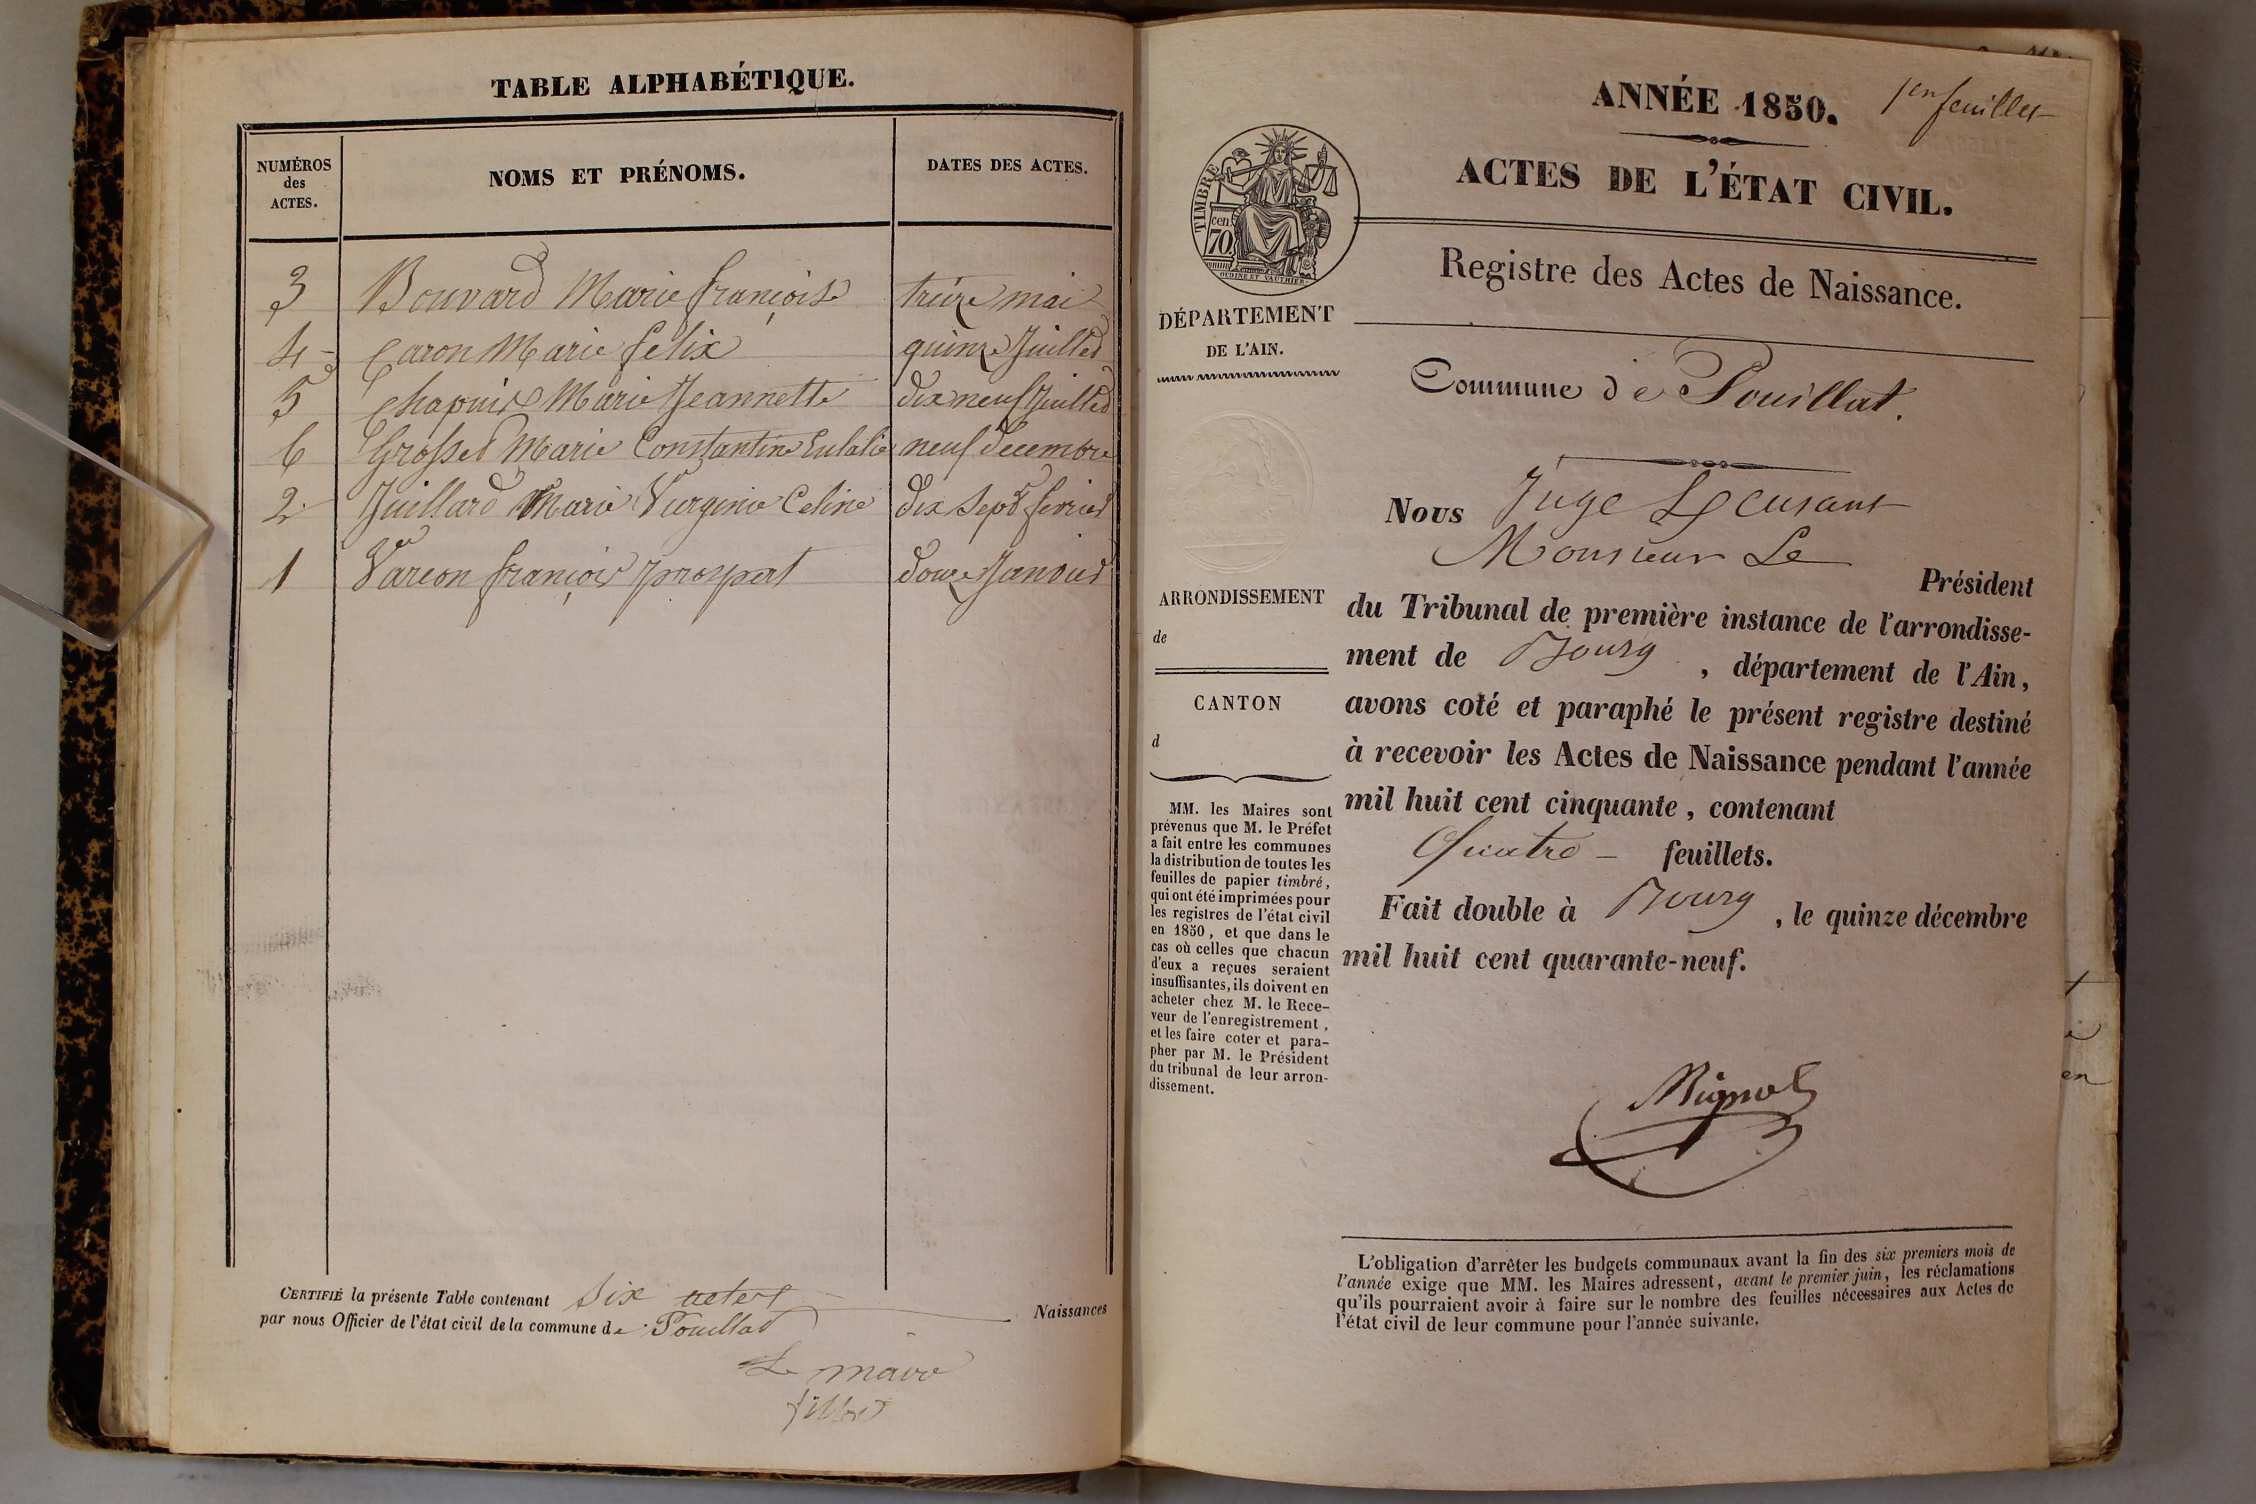 TABLE ALPHABÉTIQUE.
NUMÉROS
des
ACTES.
NOMS ET PRÉNOMS.
DATES DES ACTES.
3 Bouvard Marie françoise treize mai
4 Caron Marie felix quinze Juillet
5 Chapuis Marie Jeannette dix neuf Juillet
6 Grosset Marie Constantine Eulalie neuf decembre
2 Juillard Marie Virginie Celine dix sept fevrier
1 François prospert douze Janvier
CERTIFIÉ la présente Table contenant Six actes Naissances
par nous Officier de l'état civil de la commune de Pouillat
Le maire
ANNÉE 1850. 1er feuillet
ACTES DE L'ÉTAT CIVIL.
Registre des Actes de Naissance.
TIMBRE
70 cen
OUDINE ET VAUTHIER
DÉPARTEMENT
DE L'AIN.
Commune de Pouillat.
Nous Juge
Monsieur Le
Président
du Tribunal de première instance de l'arrondisse-
ment de Bourg, département de l'Ain,
avons coté et paraphé le présent registre destiné
à recevoir les Actes de Naissance pendant l'année
mil huit cent cinquante, contenant
Quatre - feuillets.
Fait double à Bourg, le quinze décembre
mil huit cent quarante-neuf.
ARRONDISSEMENT
de
CANTON
d
MM. les Maires sont
prévenus que M. le Préfet
a fait entre les communes
la distribution de toutes les
feuilles de papier timbré,
qui ont été imprimées pour
les registres de l'état civil
en 1850, et que dans le
cas où celles que chacun
d'eux a reçues seraient
insuffisantes, ils doivent en
acheter chez M. le Rece-
veur de l'enregistrement,
et les faire coter et para-
pher par M. le Président
du tribunal de leur arron-
dissement.
L'obligation d'arrêter les budgets communaux avant la fin des six premiers mois de
l'année exige que MM. les Maires adressent, avant le premier juin, les réclamations
qu'ils pourraient avoir à faire sur le nombre des feuilles nécessaires aux Actes de
l'état civil de leur commune pour l'année suivante.